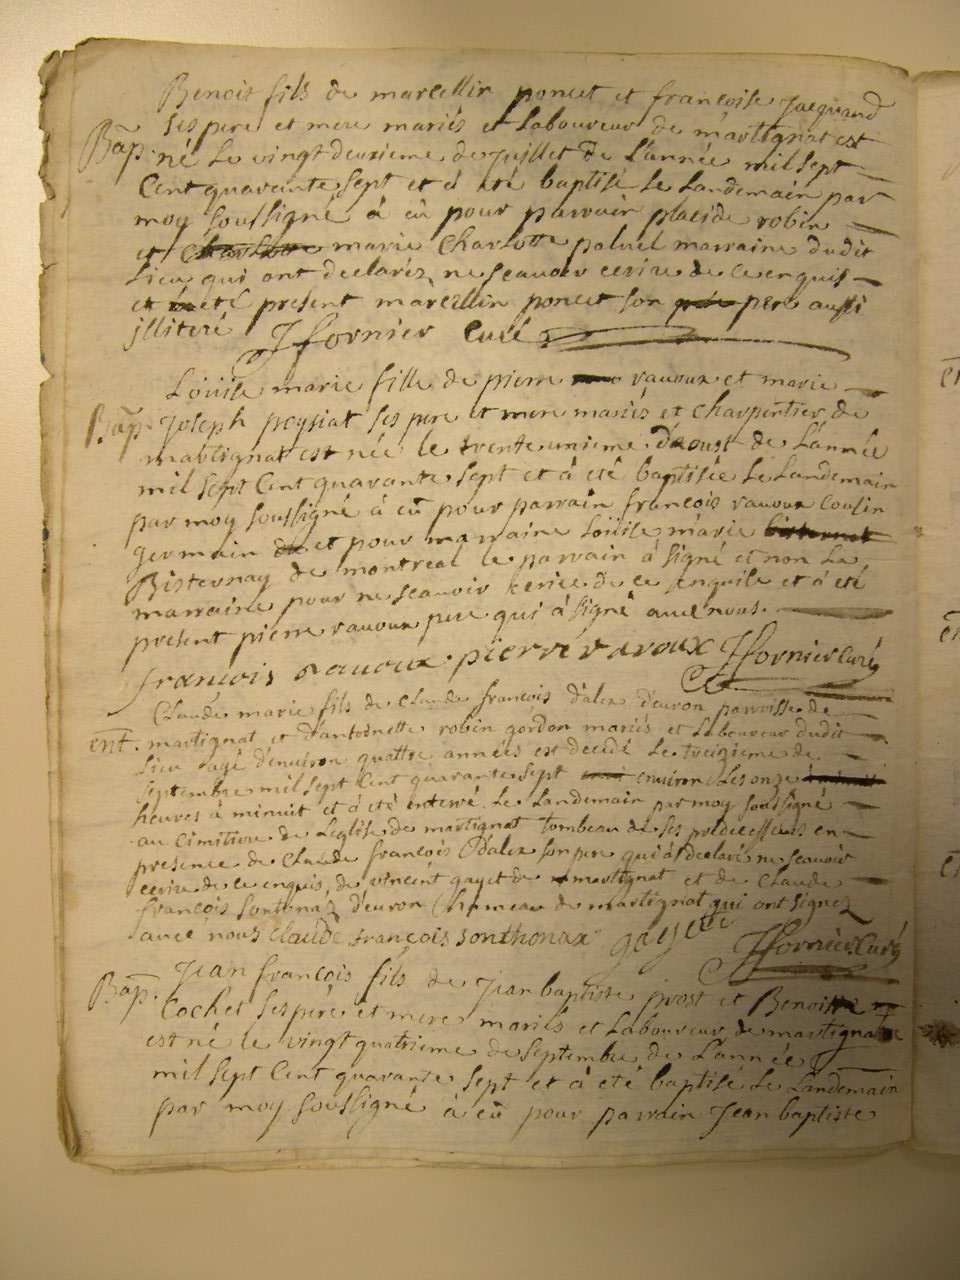 Benoit fils de marcellin poncet et francoise Jacquand
ses pere et mere mariés et Laboureur de martignat est
Bap. né Le vingt deuxieme de Juillet de L'année mil sept
Cent quarante sept et à eté baptisé Le Landemain par
moy soussigné à eû pour parrain placide robin
et Charlotte marie Charlotte paluel marraine dudit
Lieu qui ont declarez ne scauoir ecrire de ce enquis
et eté present marcellin poncet son pere aussi
jlliteré JFornier Curé
Loüise marie fille de pierre rauoux et marie
Bap. Joseph peysiat ses pere et mere mariés et charpentier de
martignat est née le trente unieme d'aoust de L'année
mil sept Cent quarante sept et à eté baptisée Le Landemain
par moy soussigné à eû pour parrain francois rauoux Cousin
germain et pour marraine Loüise marie
Bisternay de montreal le parrain à signé et non La
marraine pour ne scauoir ecrire de ce enquise et à eté
present pierre rauoux pere qui à signé auec nous.
francois rauoux. pierre ravoux JFornier Curé
Claude marie fils de Claude francois d'alex d'euron parroisse de
ent. martignat et d'antoinette robin gordon mariés et Laboureur dudit
Lieu agé d'enuiron quattre années est decedé Le treizieme de
septembre mil sept Cent quarante sept enuiron Les onze
heures à minuit et à eté enterré Le Landemain par moy soussigné
au Cimitiere de L'eglise de martignat tombeau de ses predecesseurs en
presence de Claude francois d'alex son pere qui à declaré ne scauoir
ecrire de ce enquis, de vincent gayet de martignat et de Claude
francois sontonaz d'euron hameau de martignat qui ont signez
auec nous Claude francois sonthonax gayet JFornier Curé
Bap. Jean francois fils de Jean baptiste prost et Benoitte
Cochet ses pere et mere mariés et Laboureur de martignat
est né le vingt quatrieme de septembre de L'année
mil sept Cent quarante sept et à eté baptisé Le Landemain
par moy soussigné à eû pour parrain Jean baptiste